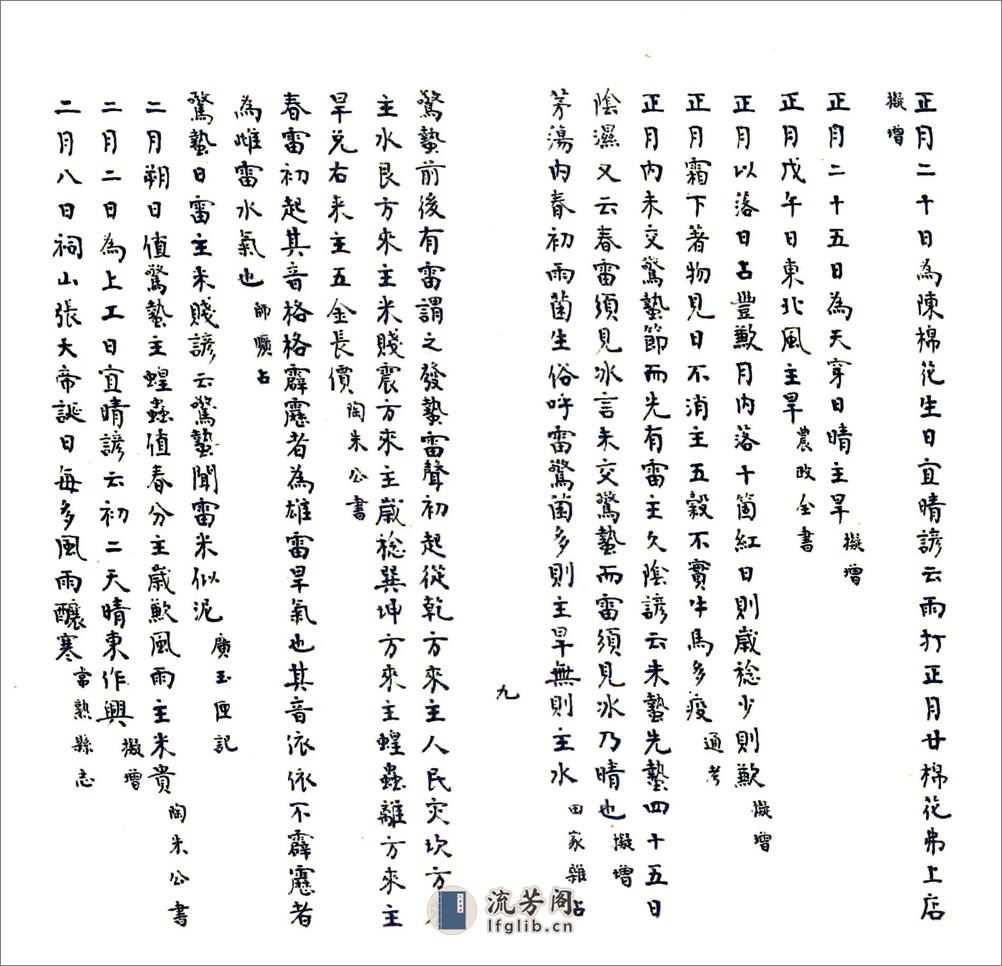 正月二十日為陳棉花生日宜晴諺云雨打正月廿棉花弗上店
擬增
正月二十五日為天穿日晴主旱擬增
正月戊午日東北風主旱農政全書
正月以落日占豐歉月內落十箇紅日則歲稔少則歉擬增
正月霜下著物見日不消主五穀不實牛馬多疫通考
正月內未交驚蟄節而先有雷主久陰諺云未蟄先蟄四十五日
陰濕又云春雷須見冰言未交驚蟄而雷須見冰乃晴也擬增
茅蕩內春初雨菌生俗呼雷驚菌多則主旱無則主水田家雜占
九
驚蟄前後有雷謂之發蟄雷聲初起從乾方來主人民灾坎方
主水艮方來主米賤震方來主歲稔巽坤方來主蝗蟲離方來主
旱兌右來主五金長價陶朱公書
春雷初起其音格格霹靂者為雄雷旱氣也其音依依不霹靂者
為雌雷水氣也師曠占
驚蟄日雷主米賤諺云驚蟄聞雷米似泥廣玉匣記
二月朔日值驚蟄主蝗蟲值春分主歲歉風雨主米貴陶朱公書
二月二日為上工日宜晴諺云初二天晴東作興擬增
二月八日祠山張大帝誕日每多風雨釀寒常熟縣志
流芳阁
lfglib.cn